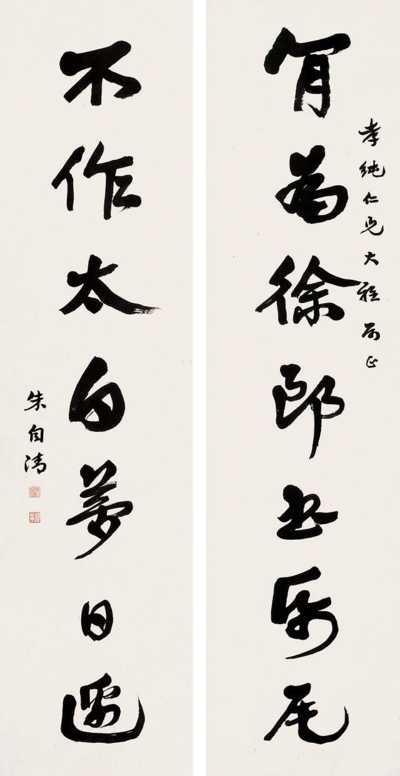 孝純仁兄大雅屬正
肎為徐郎書帋尾
不作太白夢日邊
朱自清